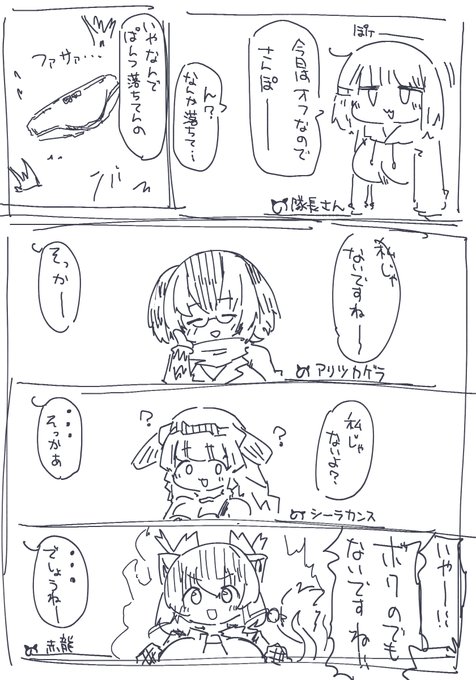 ぽけー
今日は オフなので
さんぽーー
ん?
なんか落ちて…
隊長さん
いやなんで
ぱんつ落ちてんの
ファサァ…
私じゃ
ないですねー〜
そっかー
アリツカゲラ
私じゃ
ないよ?
?
?
・・・
そっかぁ
シーラカンス
いやー!!
ボクのでも
ないですね!!
・・・
でしょうねー
赤龍